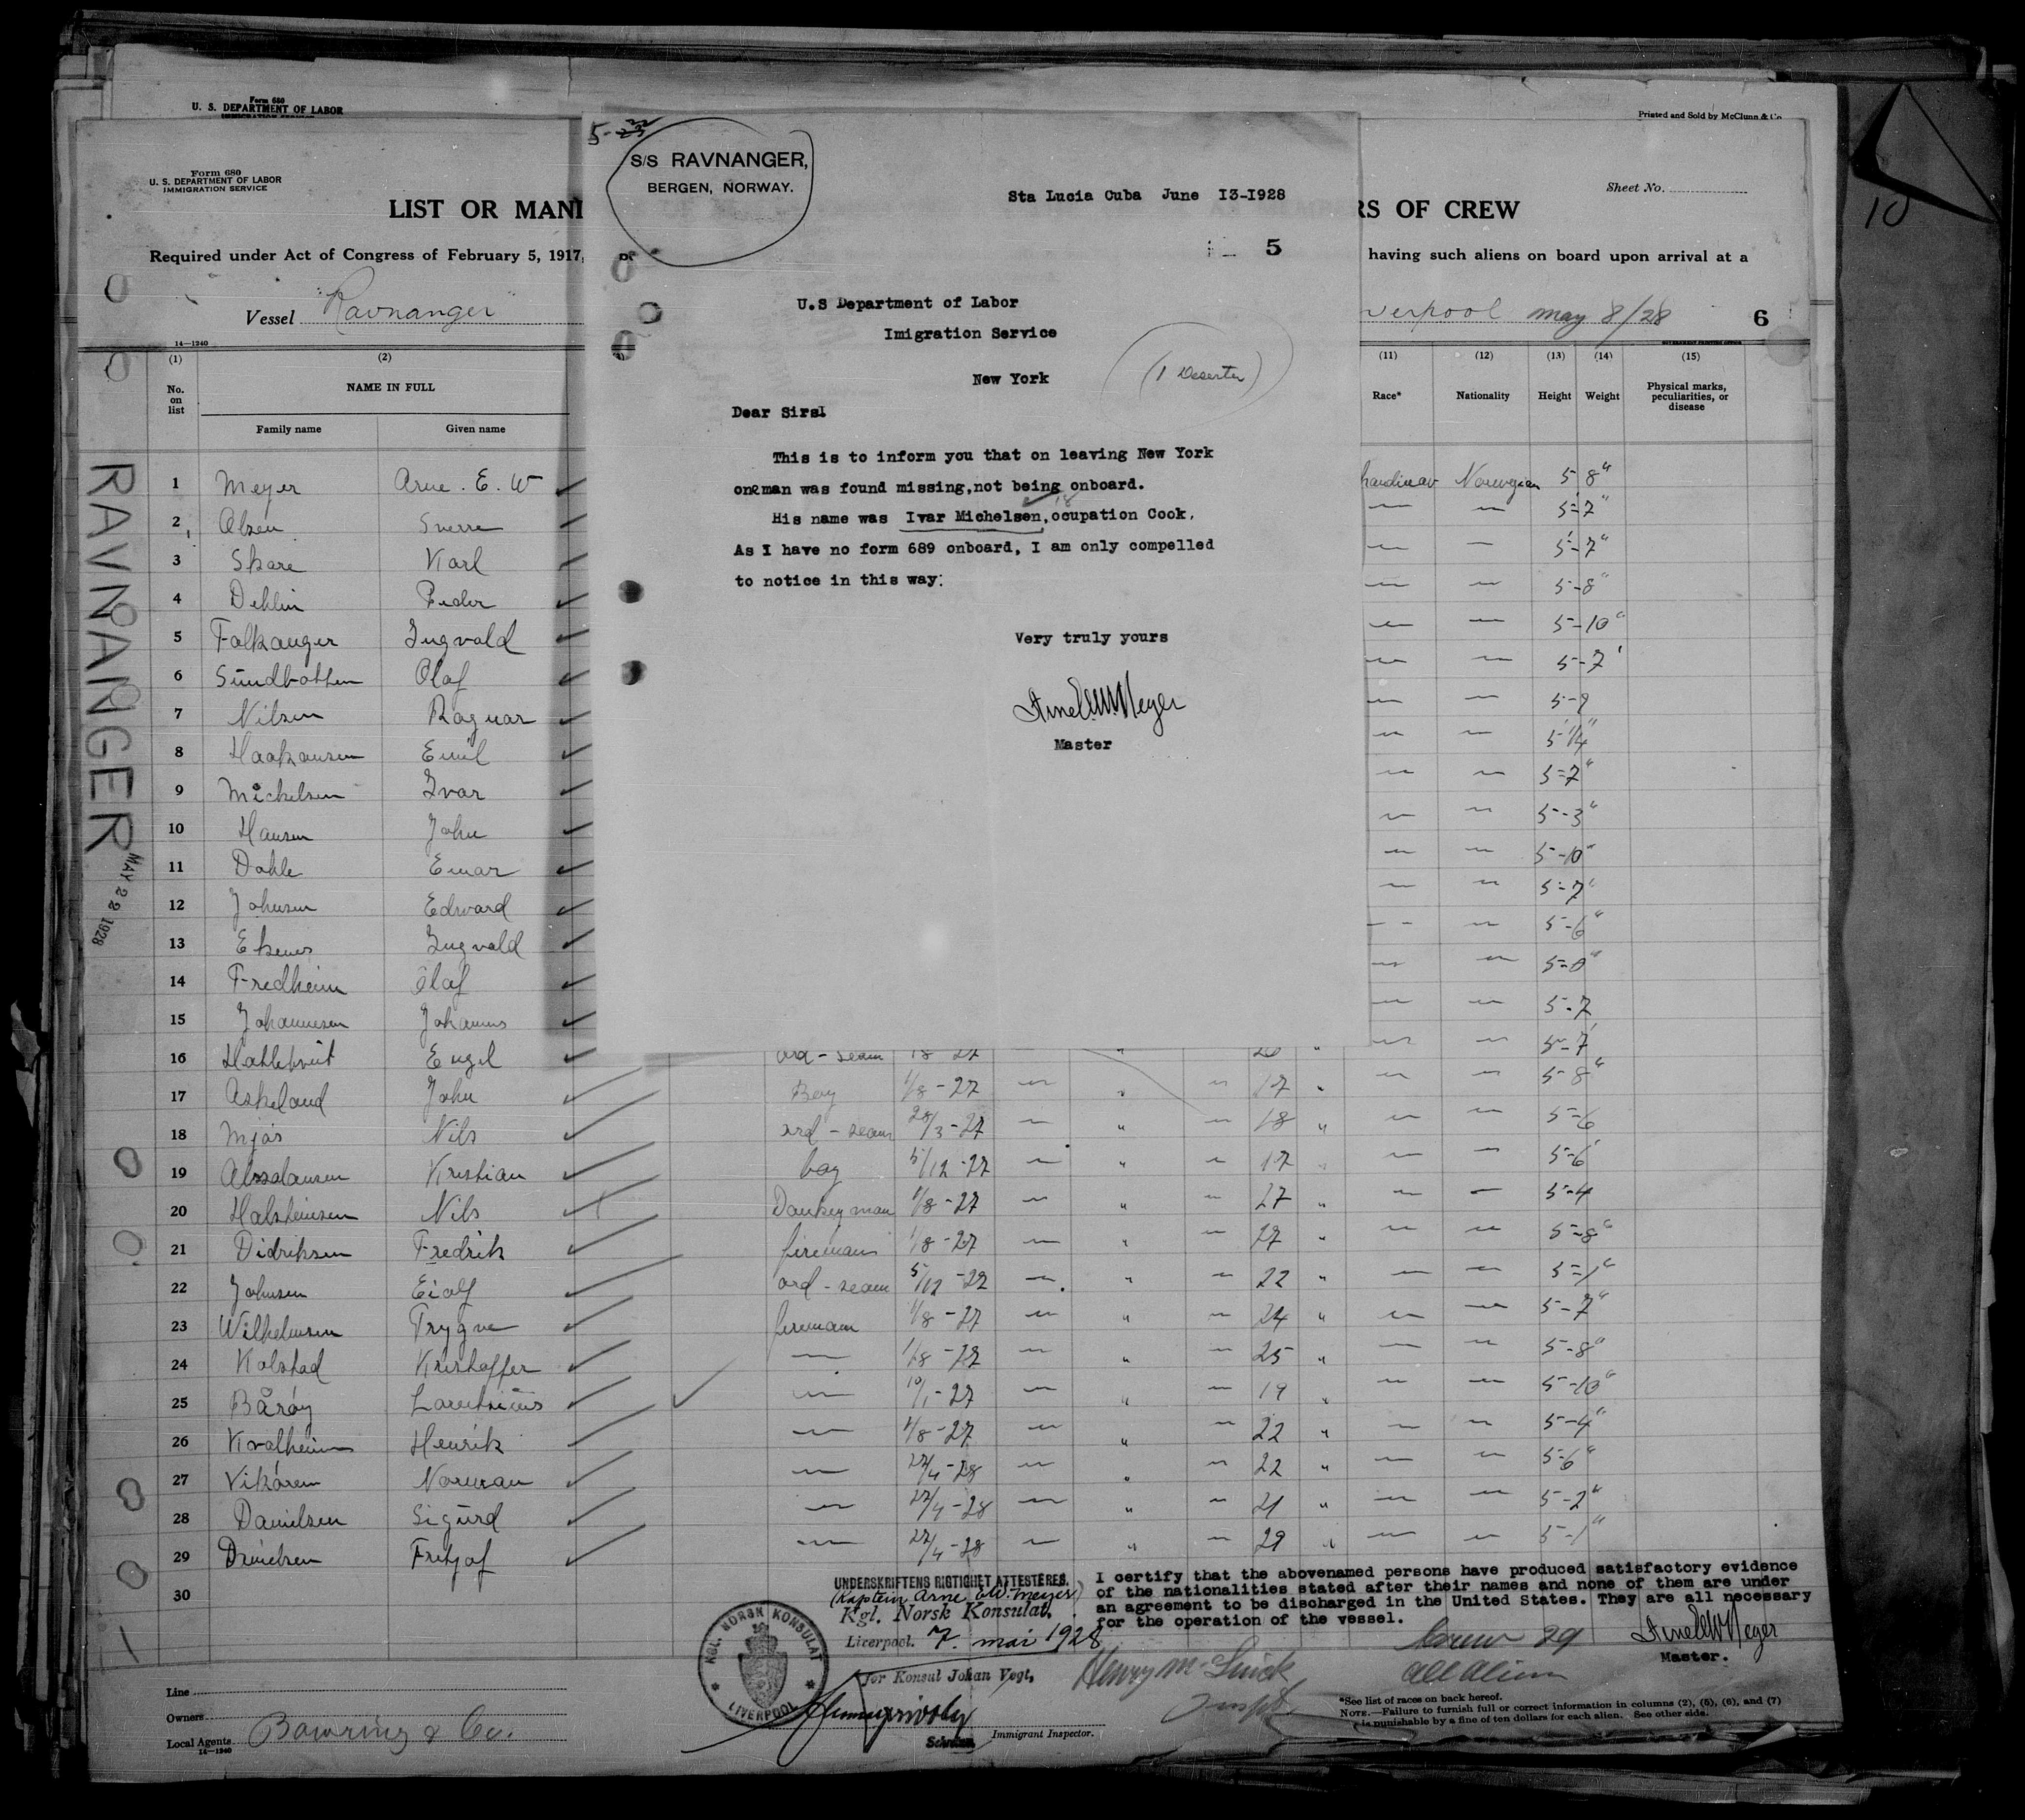 Form 680
U. S. DEPARTMENT OF LABOR
Printed and Sold by McClunn & Co
Form 680
U. S. DEPARTMENT OF LABOR
IMMIGRATION SERVICE
LIST OR MANI
RS OF CREW
Sheet No.
Required under Act of Congress of February 5, 1917,
having such aliens on board upon arrival at a
Vessel "Ravnanger"
verpool may 8/28
6
14—1240
S/S RAVNANGER,
BERGEN, NORWAY.
Sta Lucia Cuba June I3-I928
5
U.S Department of Labor
Imigration Service
New York
(1 Deserter)
Dear Sirs
This is to inform you that on leaving New York
one man was found missing,not being onboard.
His name was Ivar Michelsen,ocupation Cook,
As I have no form 689 onboard, I am only compelled
to notice in this way:
Very truly yours
Arne E.W.Meyer
Master
(1) (2) (11) (12) (13) (14) (15)
No. on list
NAME IN FULL
Family name Given name
Race* Nationality Height Weight Physical marks, peculiarities, or disease
RAVNANGER
MAY 22 1928
10
1 Meyer Arne . E. W Norwegian 5 8"
2 Olsen Sverre 5-7"
3 Skare Karl 5-7"
4 Dehlin Peder 5-8"
5 Falkanger Ingvald 5-10"
6 Olaf 5-7'
7 Nilsen Ragnar
8 Haakonsen Emil
9 Michelsen Ivar 5-7"
10 Hansen John 5-3"
11 Dahle Einar 5-10"
12 Johnsen Edward 5-7"
13 Ekenes Ingvald 5-6"
14 Fredheim Olaf
15 Johannesen Johannes 5-7
16 ord - seam 5-7'
17 Askeland John Boy 1/8 - 27 17 5-8"
18 Mjøs Nils ord - seam 28/3 - 27 18 5-6
19 Absalonsen Kristian boy 5/12 -27 17 5-6'
20 Halsteinsen Nils Donkeyman 1/8 - 27 27 5-4
21 Didriksen Fredrik fireman 1/8 - 27 27 5-8"
22 Johnsen ord - seam 22 5-1"
23 Wilhelmsen Trygve fireman 1/8 - 27 24 5-7"
24 Kolstad Kristoffer 1/8 - 27 25 5-8"
25 Bårøy 10/1 - 27 19 5-10"
26 Kvalheim Henrik 1/8 - 27 22 5-4"
27 Norman 22 5-6"
28 Danielsen Sigurd 21 5-2"
29 Fritjof 29 5-1"
30
UNDERSKRIFTENS RIGTIGHET ATTESTERES.
(Kaptein Arne E.W. Meyer)
Kgl. Norsk Konsulat,
Liverpool. 7. mai 1928
for Konsul Johan Vogt,
KGL. NORSK KONSULAT
LIVERPOOL
I certify that the abovenamed persons have produced satisfactory evidence
of the nationalities stated after their names and none of them are under
an agreement to be discharged in the United States. They are all necessary
for the operation of the vessel.
Crew 29
all alien
Arne E.W.Meyer
Master.
Line
Owners
Local Agents Bowring & Co.
14—1240
Immigrant Inspector.
*See list of races on back hereof.
NOTE.—Failure to furnish full or correct information in columns (2), (5), (6), and (7)
is punishable by a fine of ten dollars for each alien. See other side.